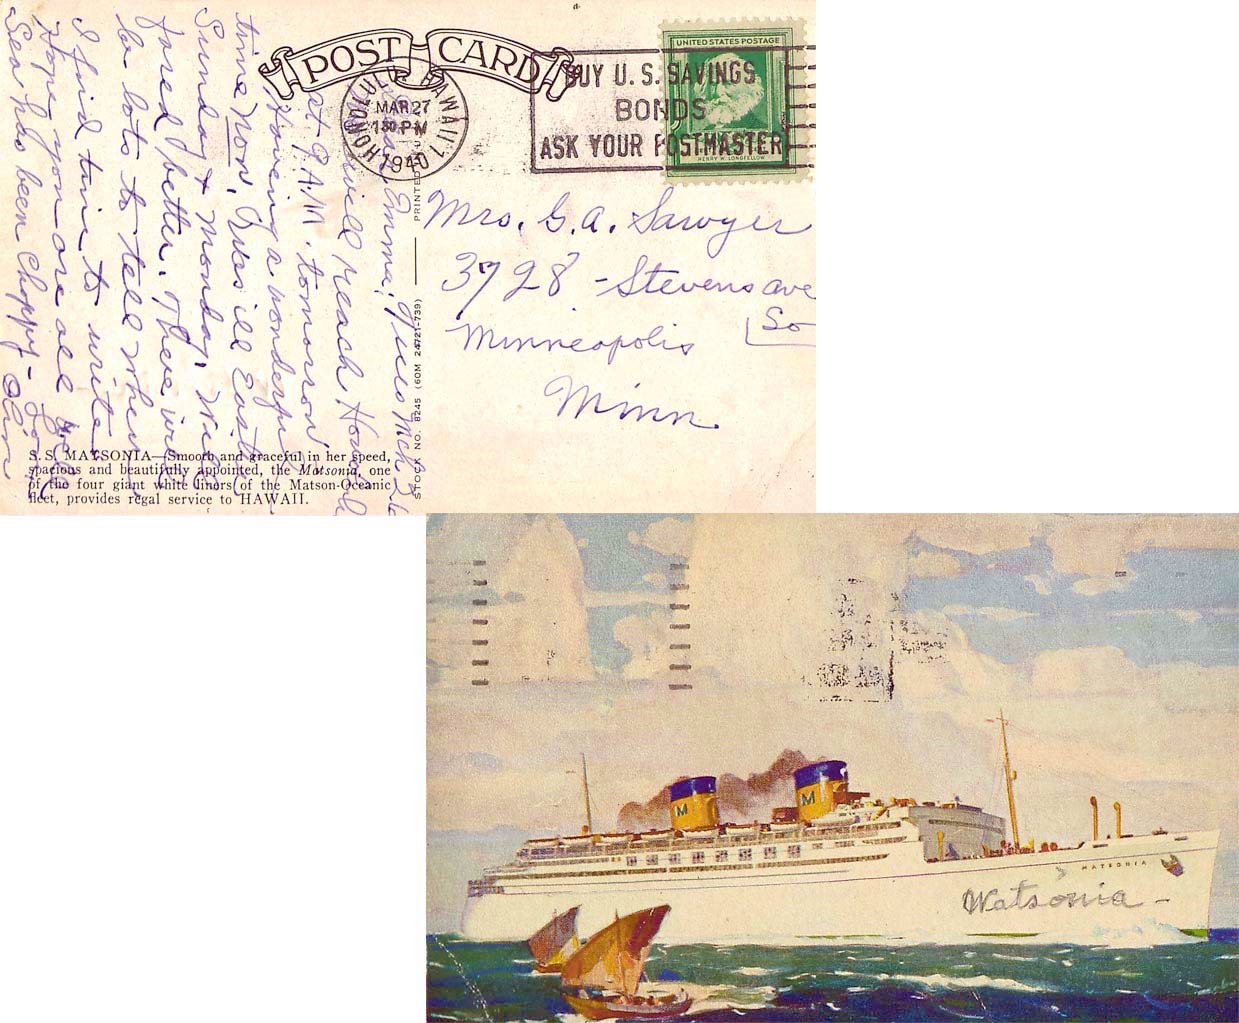 POST CARD
HONOLULU HAWAII 1
MAR 27
1 30 PM
1940
BUY U.S. SAVINGS
BONDS
ASK YOUR POSTMASTER
UNITED STATES POSTAGE
HENRY W. LONGFELLOW
Mrs. G. A. Sawyer
3728 - Stevens ave
So
Minneapolis
Minn.
Emma; Tues Mch 26
will reach
at 9 A.M. tomorrow
Having a wonderful
time now. Was ill Easter
Sunday & Monday. Will
fared better. There will
be lots to tell when
I find time to write
Hope you are all
Sea has been choppy - Love
PRINTED
STOCK NO. 8245 (60M 24721-739)
S.S. MATSONIA—Smooth and graceful in her speed,
spacious and beautifully appointed, the Matsonia, one
of the four giant white liners of the Matson-Oceanic
fleet, provides regal service to HAWAII.
M
M
MATSONIA
Watsonia -